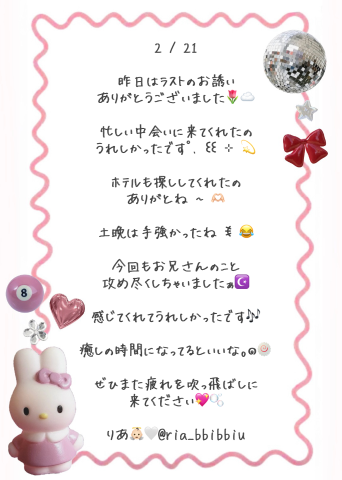 2 / 21
昨日はラストのお誘い
ありがとうございました🌷☁️
忙しい中会いに来てくれたの
うれしかったです°. ꒰꒰ ⊹ 💫
ホテルも探ししてくれたの
ありがとね ~ 🫶🏻
土晩は手強かったね 🎙 😂
今回もお兄さんのこと
攻め尽くしちゃいましたぁ☪️
感じてくれてうれしかったです🎶
癒しの時間になってるといいな。
ぜひまた疲れを吹っ飛ばしに
来てください💖🫧
りあ👼🏻🤍@ria_bbibbiu
8